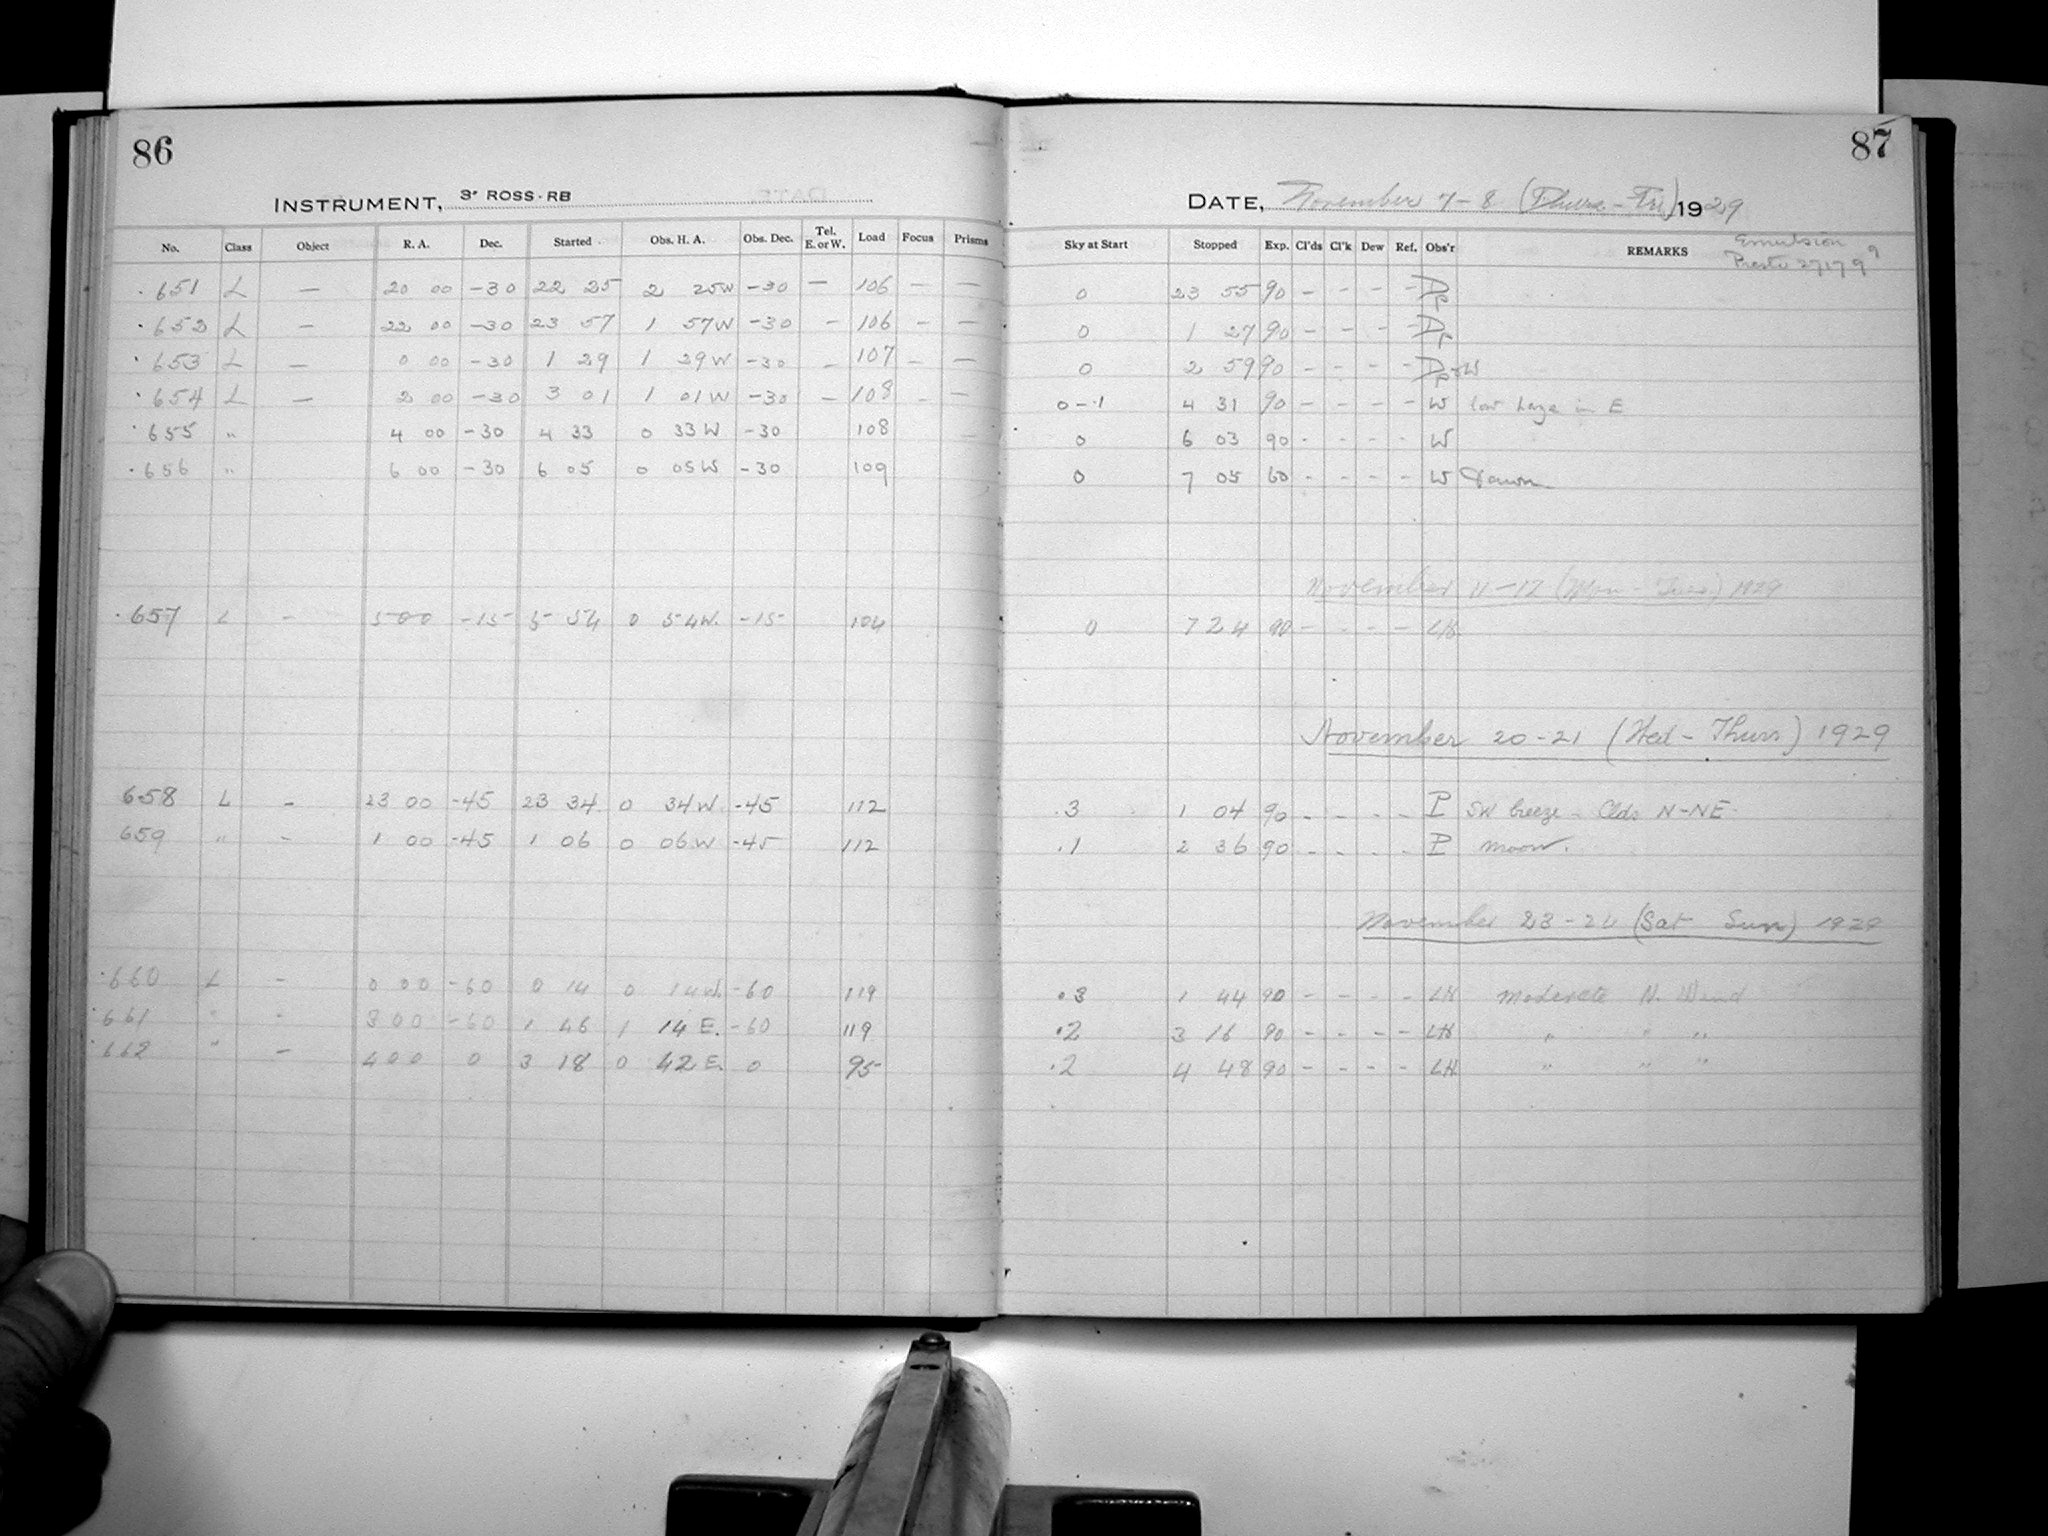 86
INSTRUMENT, 3" ROSS-RB
No. Class Object R. A. Dec. Started Obs. H. A. Obs. Dec. Tel. E. or W. Load Focus Prisms
.651 L — 20 00 -30 22 25 2 25W -30 — 106 — —
.652 L — 22 00 -30 23 57 1 57W -30 — 106 — —
.653 L — 0 00 -30 1 29 1 29W -30 — 107 — —
.654 L — 2 00 -30 3 01 1 01W -30 — 108 — —
.655 " 4 00 -30 4 33 0 33W -30 108
.656 " 6 00 -30 6 05 0 05W -30 109
.657 L — 5 00 -15 5 54 0 54W. -15 104
658 L — 23 00 -45 23 34 0 34W -45 112
659 " — 1 00 -45 1 06 0 06W -45 112
.660 L — 0 00 -60 0 14 0 14W. -60 119
.661 " — 3 00 -60 1 46 1 14E. -60 119
.662 " — 4 00 0 3 18 0 42E. 0 95
87
DATE, November 7-8 (Thurs-Fri) 1929
Sky at Start Stopped Exp. Cl'ds Cl'k Dew Ref. Obs'r REMARKS
Emulsion
Presto 27179
0 23 55 90 - - - -
0 1 27 90 - - - -
0 2 59 90 - - - -
0-.1 4 31 90 - - - - W low haze in E
0 6 03 90 - - - - W
0 7 05 60 - - - - W Dawn
November 11-12 (Mon-Tues) 1929
0 7 24 90 - - - - LH
November 20-21 (Wed-Thurs) 1929
.3 1 04 90 - - - - P SW breeze - Clds N-NE
.1 2 36 90 - - - - P moon.
November 23-24 (Sat Sun) 1929
.3 1 44 90 - - - - LH moderate N. Wind
.2 3 16 90 - - - - LH " " "
.2 4 48 90 - - - - LH " " "